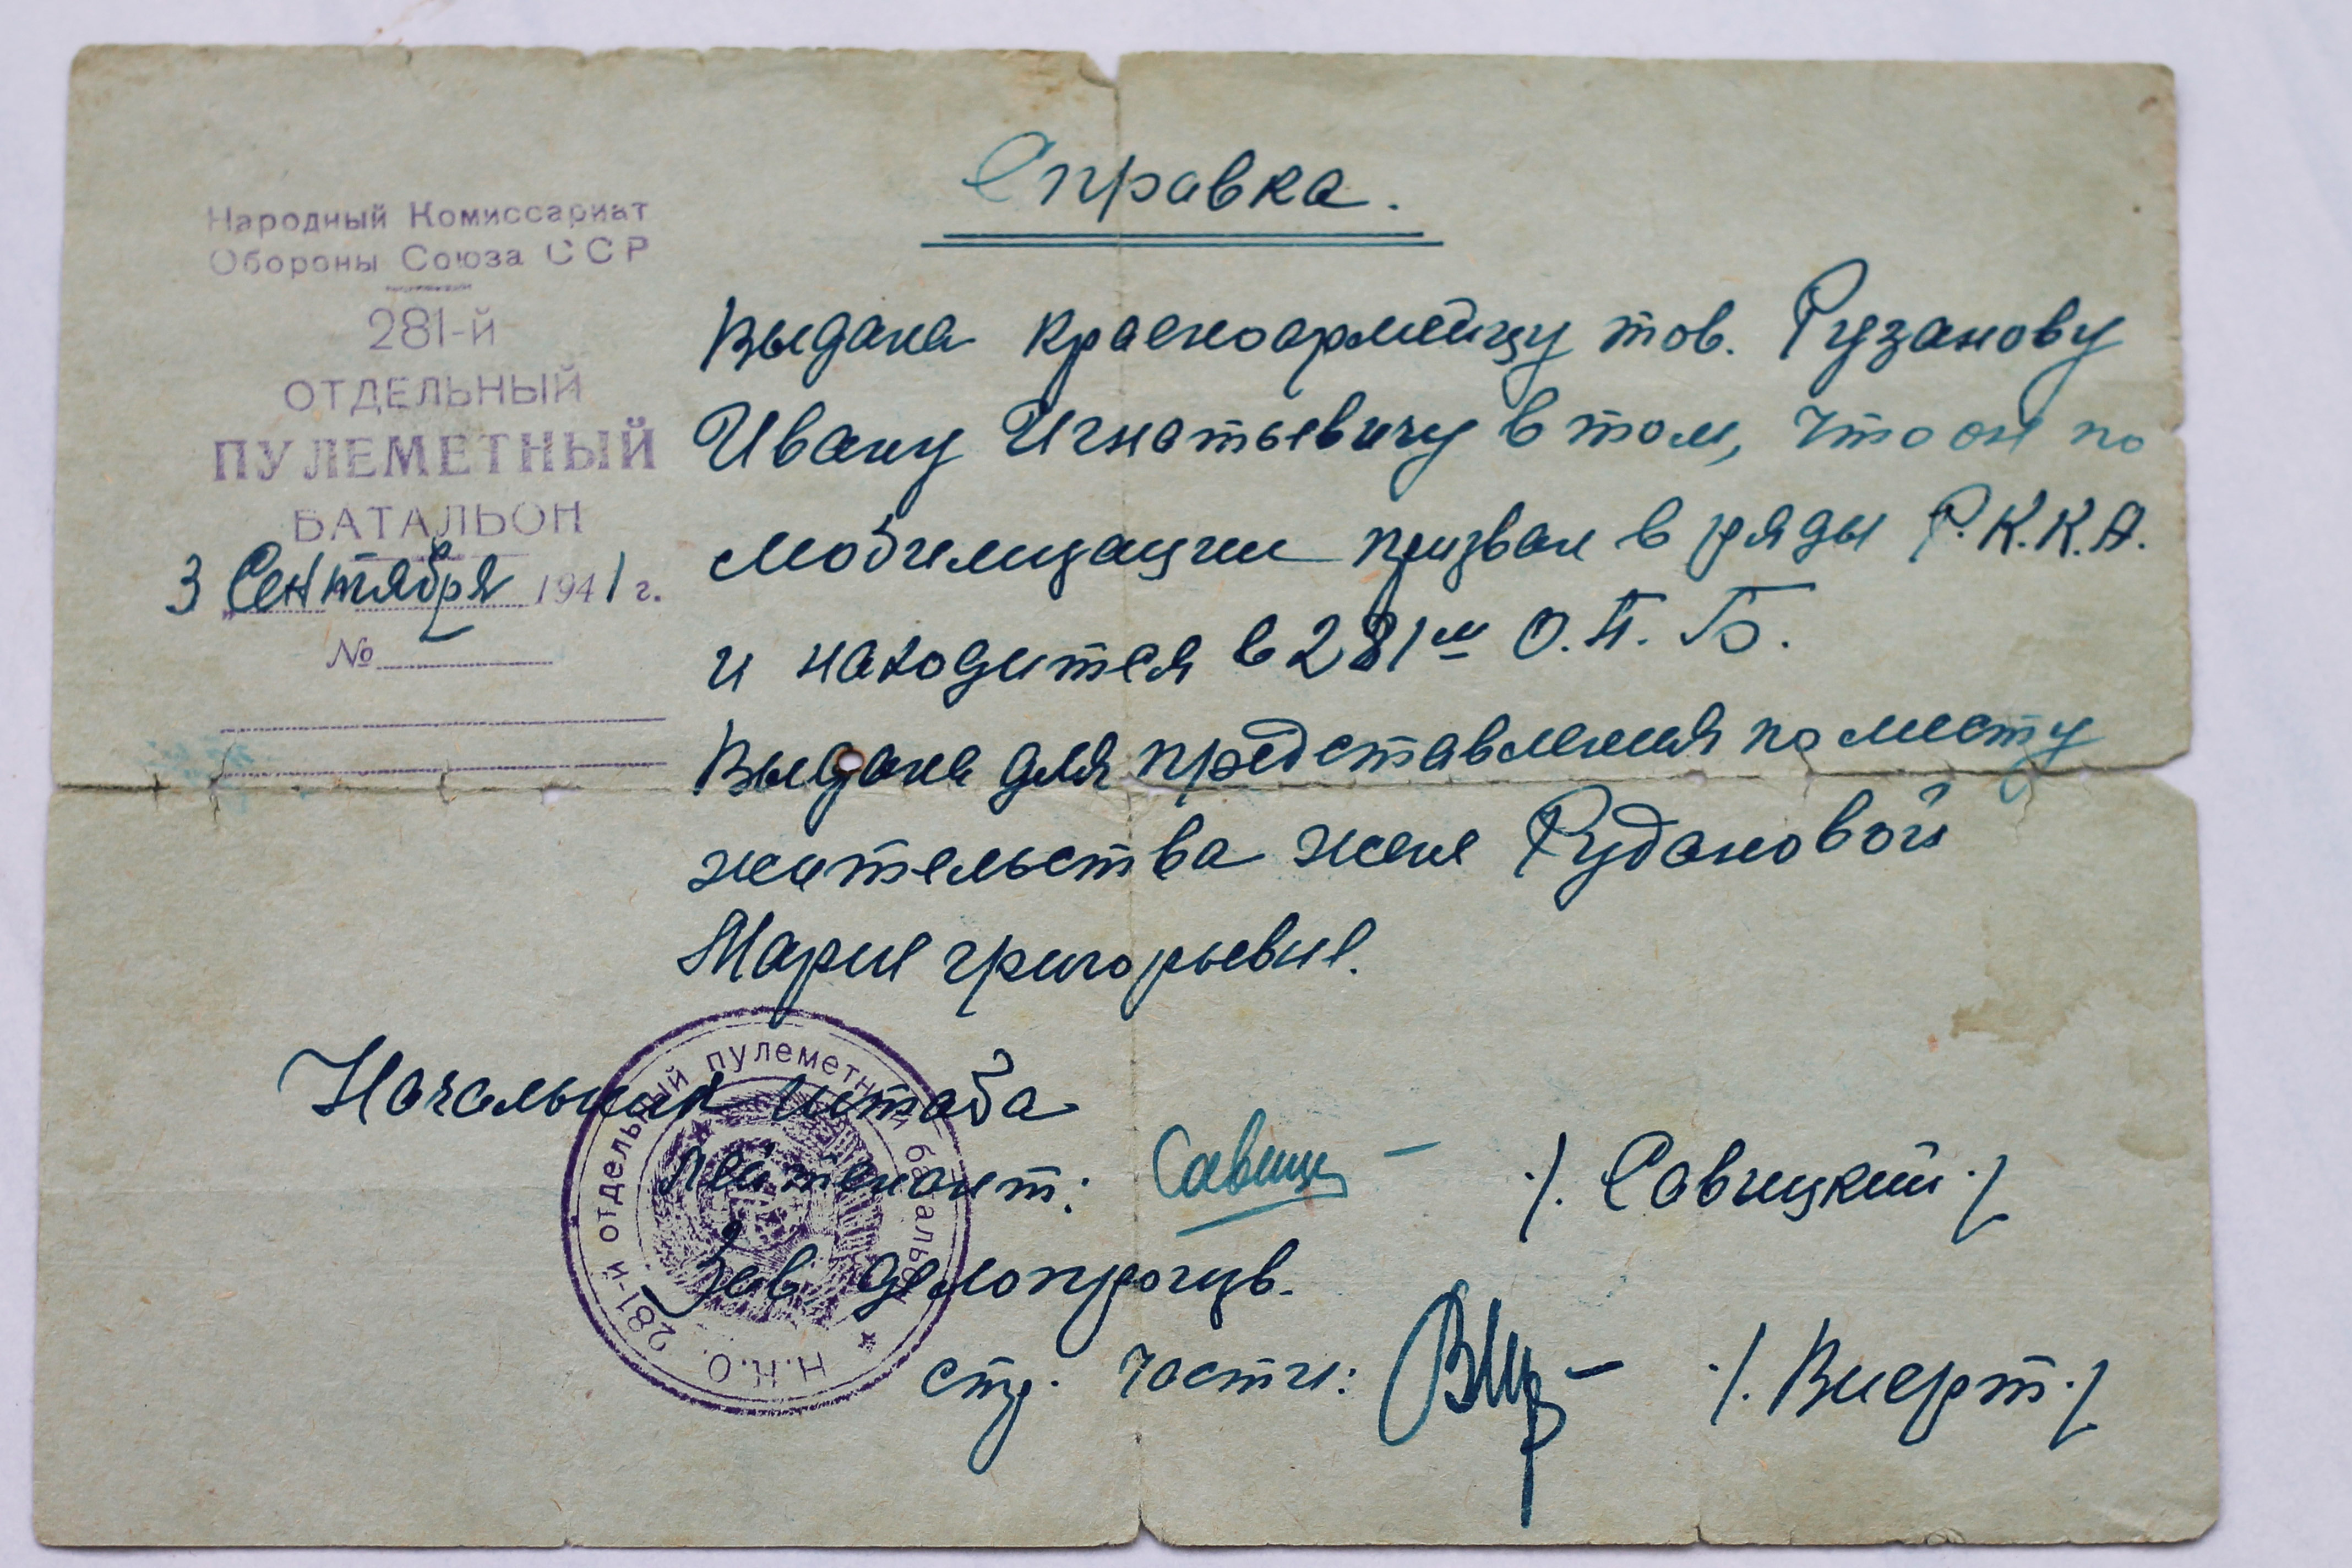 Справка.
Народный Комиссариат
Обороны Союза ССР
281-й
ОТДЕЛЬНЫЙ
ПУЛЕМЕТНЫЙ
БАТАЛЬОН
3 Сентября 1941 г.
№
Выдана красноармейцу тов. Рузанову
Ивану Игнатьевичу в том, что он по
мобилизации призван в ряды Р.К.К.А.
и находится в 281м О.П.Б.
Выдана для представления по месту
жительства жене Рудановой
Марие григорьевне.
Начальник штаба
Лейтенант: Савиц /. Савицкий ./
Зав. делопроизв.
стр. части: /. Виерт ./
Н.К.О. 281-й отдельный пулеметный батальон